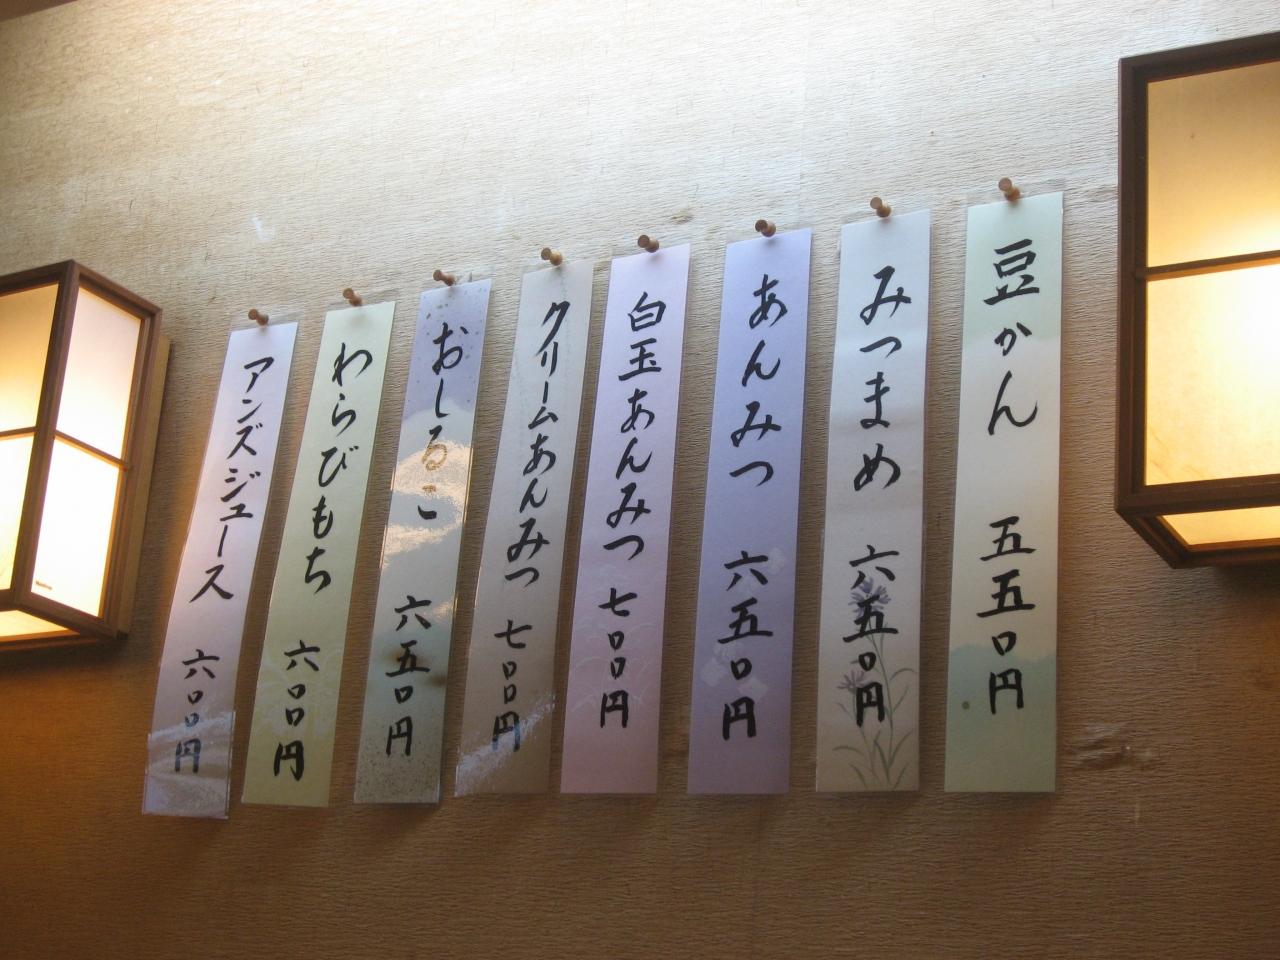 豆かん 五五〇円
みつまめ 六五〇円
あんみつ 六五〇円
白玉あんみつ 七〇〇円
クリームあんみつ 七〇〇円
おしるこ 六五〇円
わらびもち 六〇〇円
アンズジュース 六〇〇円